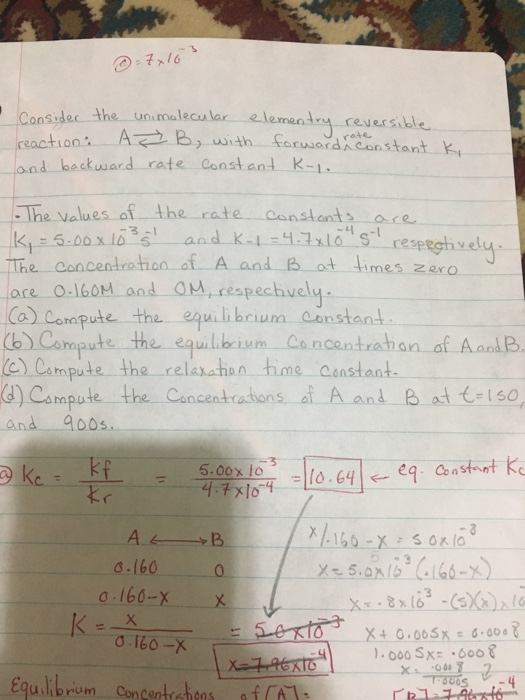 = 7x10^-3
Consider the unimolecular elementry reversible
reaction: A ⇌ B, with forward rate constant K₁
and backward rate constant K-1.
- The values of the rate constants are
K₁ = 5.00 x 10^-3 s^-1 and K-1 = 4.7x10^-4 s^-1 respectively.
The concentration of A and B at times zero
are 0.160M and 0M, respectively.
(a) Compute the equilibrium constant.
(b) Compute the equilibrium Concentration of A and B.
(c) Compute the relaxation time constant.
(d) Compute the Concentrations of A and B at t=150,
and 900s.
@ Kc = kf/kr = 5.00x10^-3/4.7x10^-4 = 10.64 ← eq. constant Kc
A ↔ B
0.160 0
0.160-x x
K = x/0.160-x = 5.0x10^-3
x=7.96x10^-4
x/.160-x = 5.0x10^-3
x = 5.0x10^-3 (.160-x)
x = .8x10^-3 -(5)(x)x10
x + 0.005x = 0.0008
1.0005x = .0008
x = .0008/1.0005 ?
Equilibrium Concentrations of [A]:
[B] = 7.96x10^-4